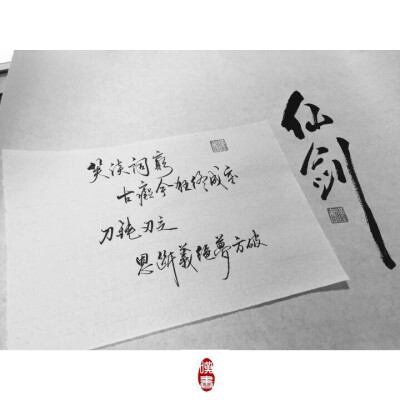 仙剑
笑谈词窮
古癡今狂终成空
刀钝刃乏
恩断義绝夢方破